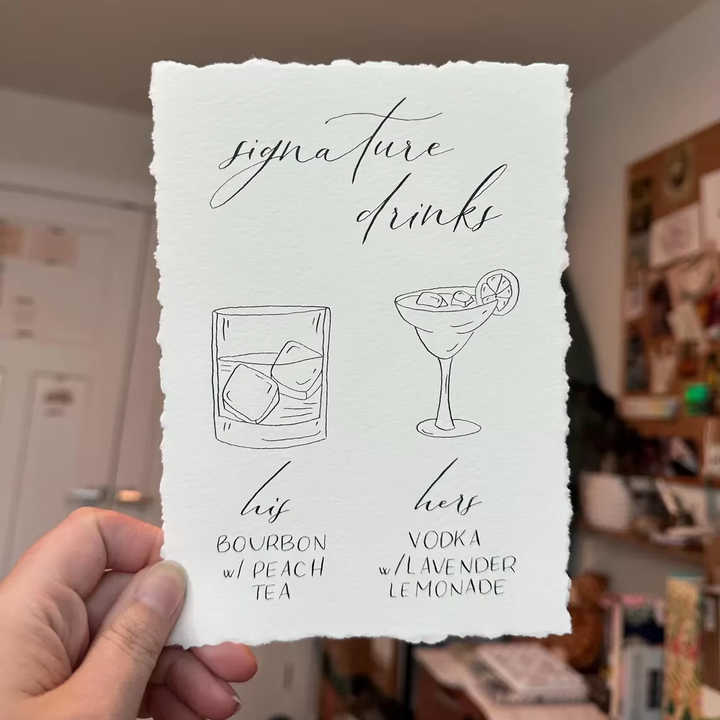 signature
drinks
his
BOURBON
w/ PEACH
TEA
hers
VODKA
w/LAVENDER
LEMONADE